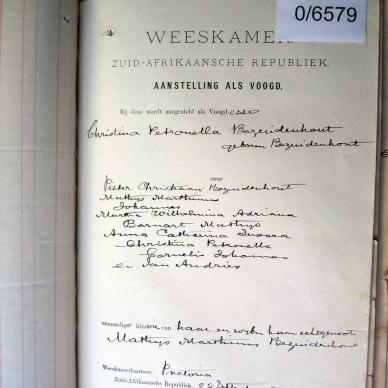 0/6579
WEESKAMER
ZUID-AFRIKAANSCHE REPUBLIEK.
AANSTELLING ALS VOOGD.
Bij deze wordt aangesteld als Voogd
Christina Petronella Bezuidenhout
geboren Bezuidenhout
over
Pieter Christiaan Bezuidenhout
Mathys Marthinus
Johannes
Martha Wilhelmina Adriana
Barnart Mathys
Anna Catharina Susara
Christina Petronella
Cornelis Johannes
en Jan Andries
minderjarige kinderen van haar en wylen haar echtgenoot
Mathys Marthinus Bezuidenhout
Weeskamerkantoor, Pretoria
Zuid-Afrikaansche Republiek,